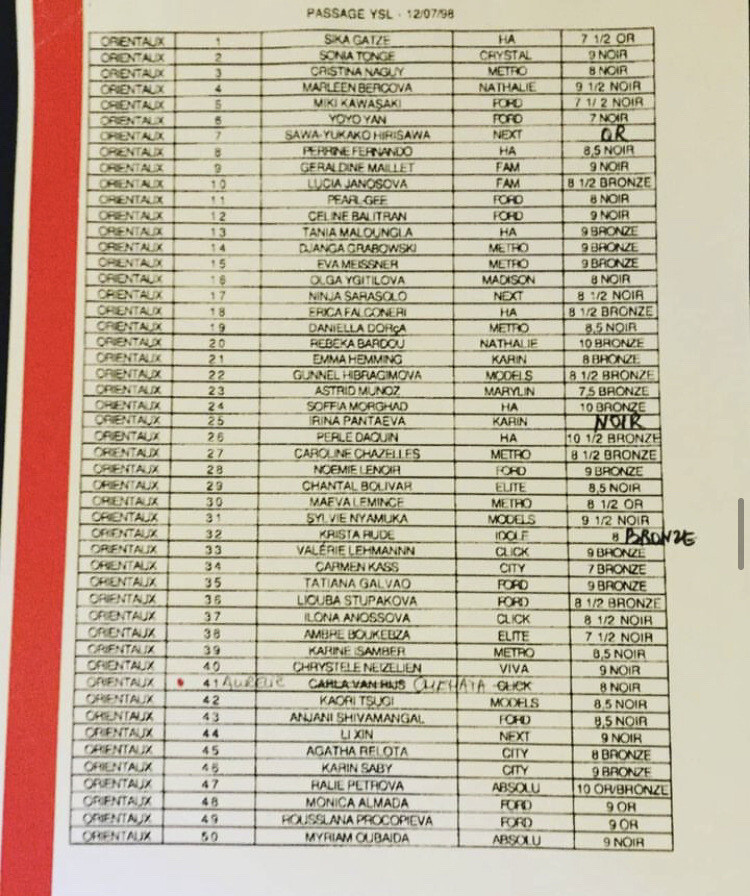 PASSAGE YSL - 12/07/98
ORIENTAUX 1 SIKA GATZE HA 7 1/2 OR
ORIENTAUX 2 SONIA TONGE CRYSTAL 9 NOIR
ORIENTAUX 3 CRISTINA NAGUY METRO 8 NOIR
ORIENTAUX 4 MARLEEN BERGOVA NATHALIE 9 1/2 NOIR
ORIENTAUX 5 MIKI KAWASAKI FORD 7 1/2 NOIR
ORIENTAUX 6 YOYO YAN FORD 7 NOIR
ORIENTAUX 7 SAWA-YUKAKO HIRISAWA NEXT OR
ORIENTAUX 8 PERRINE FERNANDO HA 8,5 NOIR
ORIENTAUX 9 GERALDINE MAILLET FAM 9 NOIR
ORIENTAUX 10 LUCIA JANOSOVA FAM 8 1/2 BRONZE
ORIENTAUX 11 PEARL-GEE FORD 8 NOIR
ORIENTAUX 12 CELINE BALITRAN FORD 9 NOIR
ORIENTAUX 13 TANIA MALOUNGLA HA 9 BRONZE
ORIENTAUX 14 DJANGA GRABOWSKI METRO 9 BRONZE
ORIENTAUX 15 EVA MEISSNER METRO 9 BRONZE
ORIENTAUX 16 OLGA YGITILOVA MADISON 8 NOIR
ORIENTAUX 17 NINJA SARASOLO NEXT 8 1/2 NOIR
ORIENTAUX 18 ERICA FALCONERI HA 8 1/2 BRONZE
ORIENTAUX 19 DANIELLA DORÇA METRO 8,5 NOIR
ORIENTAUX 20 REBEKA BARDOU NATHALIE 10 BRONZE
ORIENTAUX 21 EMMA HEMMING KARIN 8 BRONZE
ORIENTAUX 22 GUNNEL HIBRAGIMOVA MODELS 8 1/2 BRONZE
ORIENTAUX 23 ASTRID MUNOZ MARYLIN 7,5 BRONZE
ORIENTAUX 24 SOFFIA MORGHAD HA 10 BRONZE
ORIENTAUX 25 IRINA PANTAEVA KARIN NOIR
ORIENTAUX 26 PERLE DAQUIN HA 10 1/2 BRONZE
ORIENTAUX 27 CAROLINE CHAZELLES METRO 8 1/2 BRONZE
ORIENTAUX 28 NOEMIE LENOIR FORD 9 BRONZE
ORIENTAUX 29 CHANTAL BOLIVAR ELITE 8,5 NOIR
ORIENTAUX 30 MAEVA LEMINCE METRO 8 1/2 OR
ORIENTAUX 31 SYLVIE NYAMUKA MODELS 9 1/2 NOIR
ORIENTAUX 32 KRISTA RUDE IDOLE 8 BRONZE
ORIENTAUX 33 VALÉRIE LEHMANNN CLICK 9 BRONZE
ORIENTAUX 34 CARMEN KASS CITY 7 BRONZE
ORIENTAUX 35 TATIANA GALVAO FORD 9 BRONZE
ORIENTAUX 36 LIOUBA STUPAKOVA FORD 8 1/2 BRONZE
ORIENTAUX 37 ILONA ANOSSOVA CLICK 8 1/2 NOIR
ORIENTAUX 38 AMBRE BOUKEBZA ELITE 7 1/2 NOIR
ORIENTAUX 39 KARINE ISAMBER METRO 8,5 NOIR
ORIENTAUX 40 CHRYSTELE NEIZELIEN VIVA 9 NOIR
ORIENTAUX 41 CARLA VAN RIJS CLICK 8 NOIR
ORIENTAUX 42 KAORI TSUGI MODELS 8,5 NOIR
ORIENTAUX 43 ANJANI SHIVAMANGAL FORD 8,5 NOIR
ORIENTAUX 44 LI XIN NEXT 9 NOIR
ORIENTAUX 45 AGATHA RELOTA CITY 8 BRONZE
ORIENTAUX 46 KARIN SABY CITY 9 BRONZE
ORIENTAUX 47 RALIE PETROVA ABSOLU 10 OR/BRONZE
ORIENTAUX 48 MONICA ALMADA FORD 9 OR
ORIENTAUX 49 ROUSSLANA PROCOPIEVA FORD 9 OR
ORIENTAUX 50 MYRIAM OUBAIDA ABSOLU 9 NOIR